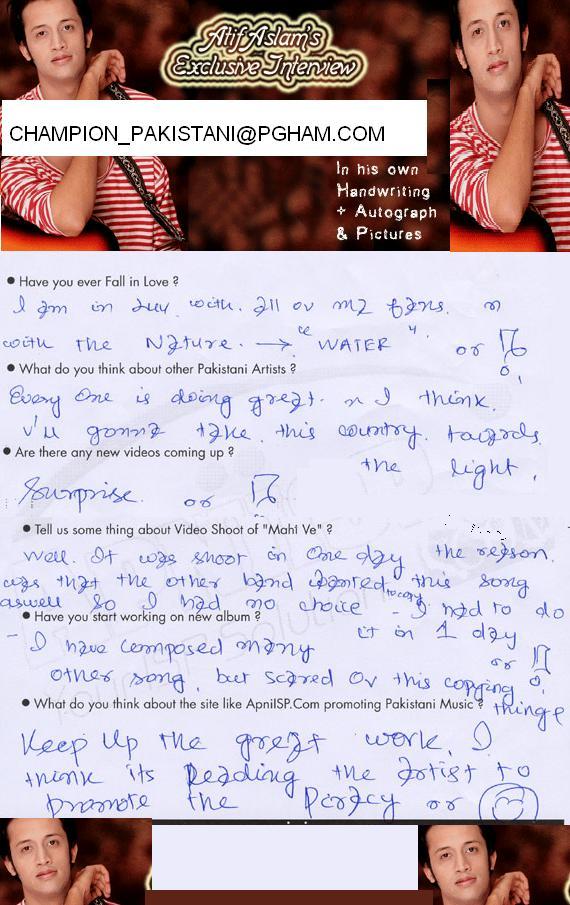 Atif Aslam's
Exclusive Interview
CHAMPION_PAKISTANI@PGHAM.COM
In his own
Handwriting
+ Autograph
& Pictures
• Have you ever Fall in Love ?
I am in luv with. all ov my fans. n
with the Nature. → "WATER" or
• What do you think about other Pakistani Artists ?
Every One is doing great. n I think.
v'll gonna take this country. towards
the light.
• Are there any new videos coming up ?
Surprise. or
• Tell us some thing about Video Shoot of "Mahi Ve" ?
Well. It was shoot in one day the reason.
was that the other band wanted to copy this song
aswell so I had no choice - I had to do
it in 1 day
• Have you start working on new album ?
- I have composed many or
other song, but scared Ov this copying
thinge
• What do you think about the site like ApniISP.Com promoting Pakistani Music ?
Keep Up the great work. I
think its leading the artist to
promote the piracy or